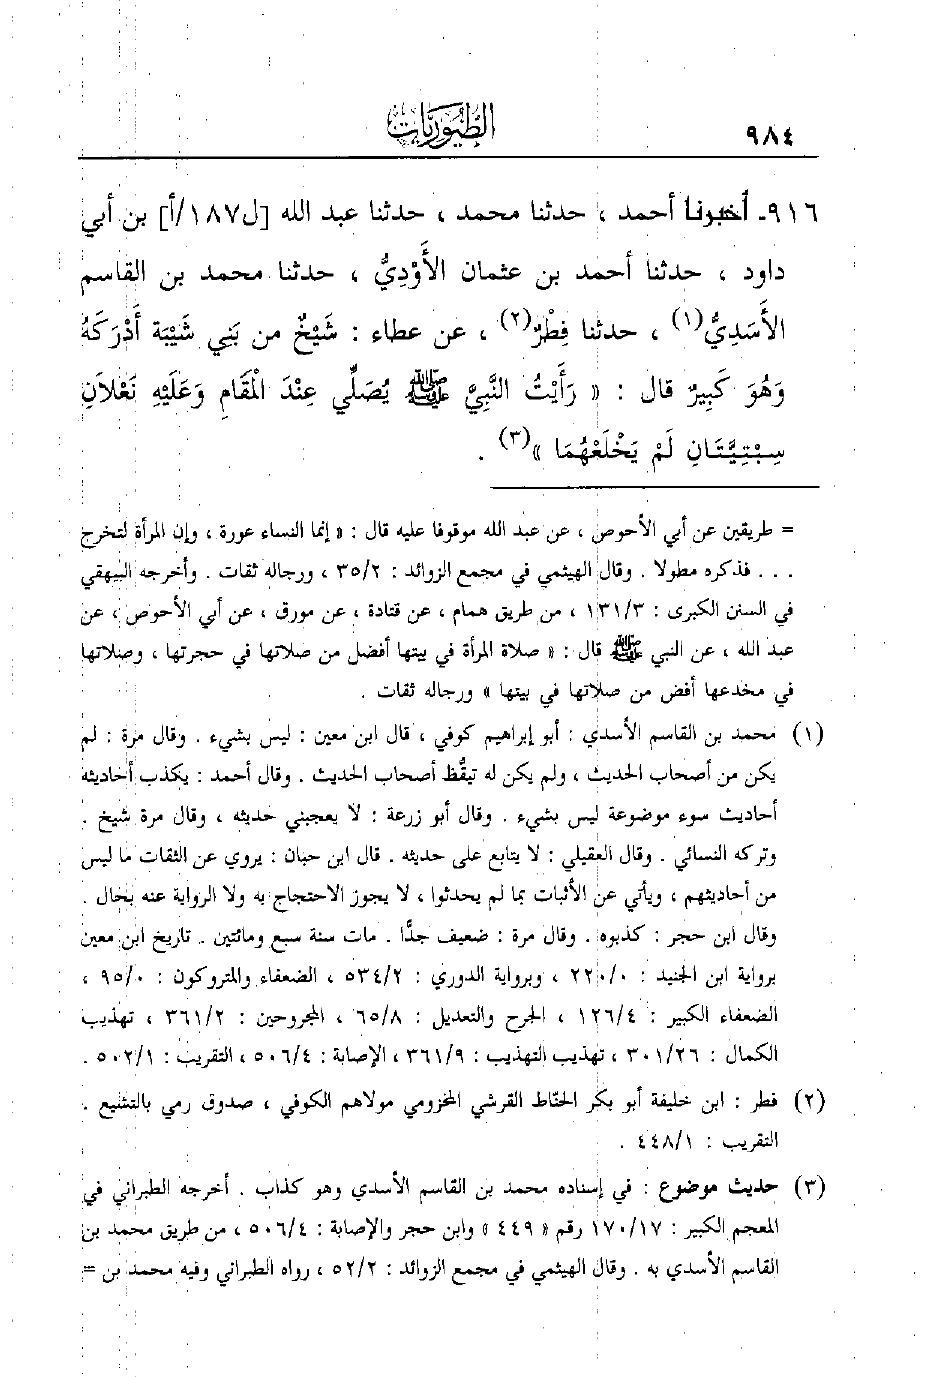 ٩٨٤
الطيوريات
٩١٦ـ أخبرنا أحمد ، حدثنا محمد ، حدثنا عبد الله [ل١٨٧/أ] بن أبي
داود ، حدثنا أحمد بن عثمان الأَوْدِيُّ ، حدثنا محمد بن القاسم
الأَسَدِيُّ(١) ، حدثنا فِطْرٌ(٢) ، عن عطاء : شَيْخٌ من بَنِي شَيْبَة أَدْرَكَهُ
وَهُوَ كَبِيرٌ قال : « رَأَيْتُ النَّبِيَّ ﷺ يُصَلِّي عِنْدَ الْمَقَامِ وَعَلَيْهِ نَعْلاَنِ
سِبْتِيَّتَانِ لَمْ يَخْلَعْهُمَا »(٣) .
= طريقين عن أبي الأحوص ، عن عبد الله موقوفا عليه قال : « إنما النساء عورة ، وإن المرأة لتخرج
. . . فذكره مطولا . وقال الهيثمي في مجمع الزوائد : ٣٥/٢ ، ورجاله ثقات . وأخرجه البيهقي
في السنن الكبرى : ١٣١/٣ ، من طريق همام ، عن قتادة ، عن مورق ، عن أبي الأحوص ، عن
عبد الله ، عن النبي ﷺ قال : « صلاة المرأة في بيتها أفضل من صلاتها في حجرتها ، وصلاتها
في مخدعها أفض من صلاتها في بيتها » ورجاله ثقات .
(١) محمد بن القاسم الأسدي : أبو إبراهيم كوفي ، قال ابن معين : ليس بشيء . وقال مرة : لم
يكن من أصحاب الحديث ، ولم يكن له تيقُّظ أصحاب الحديث . وقال أحمد : يكذب أحاديثه
أحاديث سوء موضوعة ليس بشيء . وقال أبو زرعة : لا يعجبني حديثه ، وقال مرة شيخ .
وتركه النسائي . وقال العقيلي : لا يتابع على حديثه . قال ابن حبان : يروي عن الثقات ما ليس
من أحاديثهم ، ويأتي عن الأثبات بما لم يحدثوا ، لا يجوز الاحتجاج به ولا الرواية عنه بحال .
وقال ابن حجر : كذبوه . وقال مرة : ضعيف جدًّا . مات سنة سبع ومائتين . تاريخ ابن معين
برواية ابن الجنيد : ٢٢٠/٠ ، وبرواية الدوري : ٥٣٤/٢ ، الضعفاء والمتروكون : ٩٥/٠ ،
الضعفاء الكبير : ١٢٦/٤ ، الجرح والتعديل : ٦٥/٨ ، المجروحين : ٣٦١/٢ ، تهذيب
الكمال : ٣٠١/٢٦ ، تهذيب التهذيب : ٣٦١/٩ ، الإصابة : ٥٠٦/٤ ، التقريب : ٥٠٢/١ .
(٢) فطر : ابن خليفة أبو بكر الحنّاط القرشي المخزومي مولاهم الكوفي ، صدوق رمي بالتشيع .
التقريب : ٤٤٨/١ .
(٣) حديث موضوع : في إسناده محمد بن القاسم الأسدي وهو كذاب . أخرجه الطبراني في
المعجم الكبير : ١٧٠/١٧ رقم « ٤٤٩ » وابن حجر والإصابة : ٥٠٦/٤ ، من طريق محمد بن
القاسم الأسدي به . وقال الهيثمي في مجمع الزوائد : ٥٢/٢ ، رواه الطبراني وفيه محمد بن =